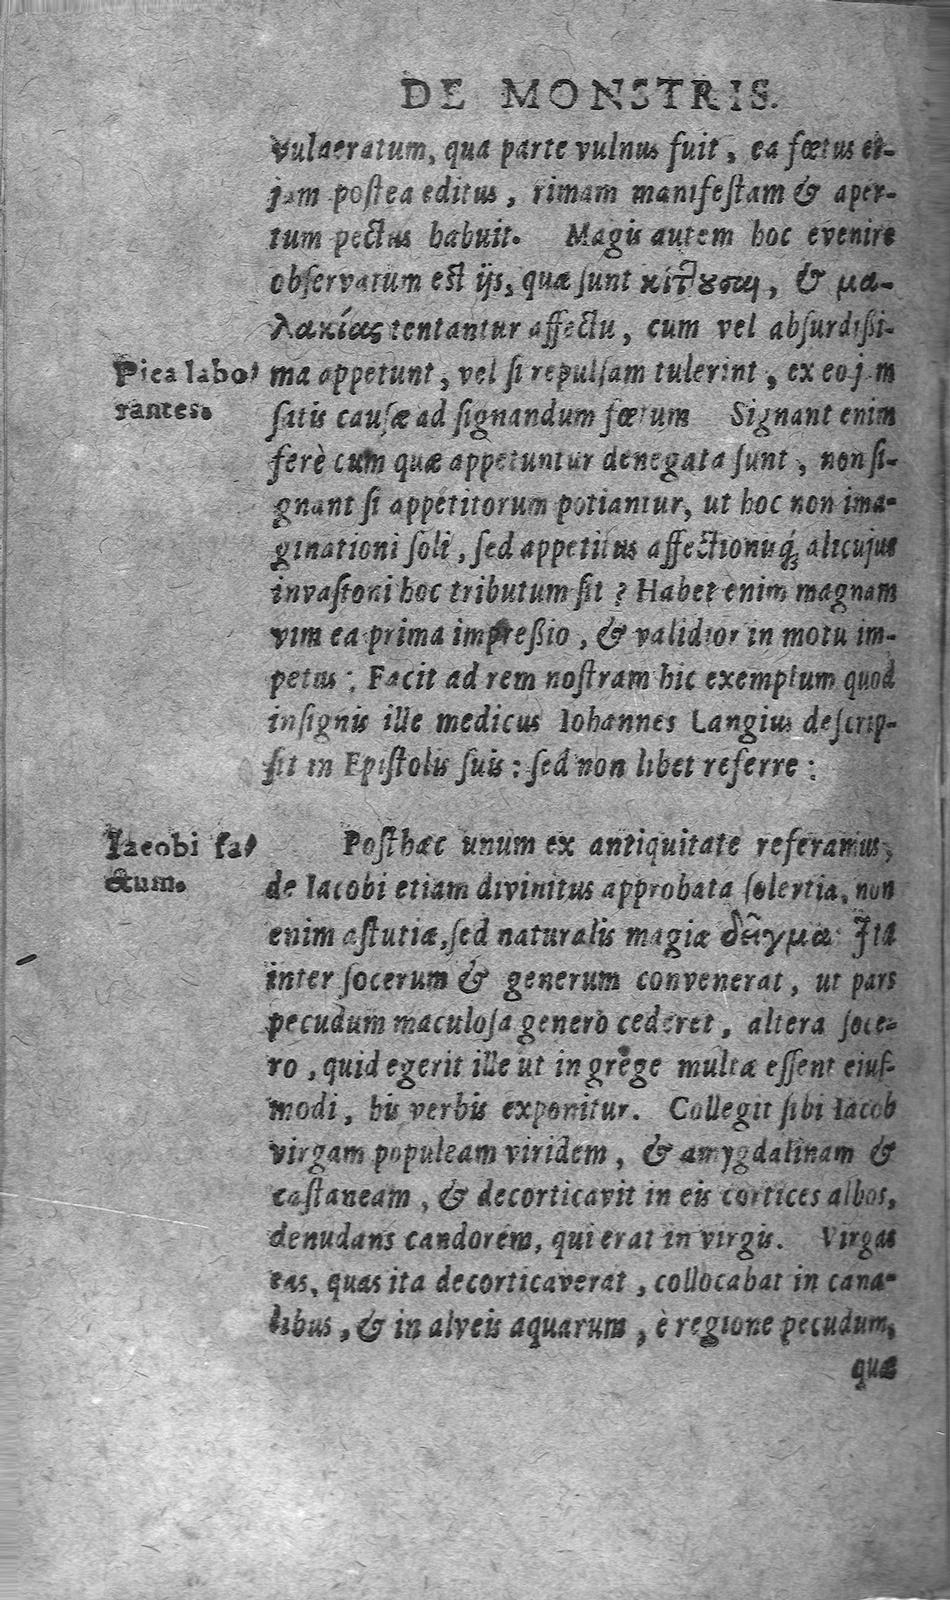 DE MONSTRIS.
vulneratum, qua parte vulnus fuit, ea fœtus et-
jam postea editus, rimam manifestam & aper-
tum pectus habuit. Magis autem hoc evenire
observatum est ijs, quæ sunt κιτ͂ουσαι, & μα-
λακίας tentantur affectu, cum vel absurdißi-
Pica labo-
ma appetunt, vel si repulsam tulerint, ex eo j m
rantes.
satis causæ ad signandum fœtum Signant enim
ferè cum quæ appetuntur denegata sunt, non si-
gnant si appetitorum potiantur, ut hoc non ima-
ginationi soli, sed appetitus affectionuq́; alicujus
invasioni hoc tributum sit? Habet enim magnam
vim ea prima impreßio, & validior in motu im-
petus: Facit ad rem nostram hic exemplum quod
insignis ille medicus Iohannes Langius descrip-
sit in Epistolis suis: sed non libet referre:
Iacobi fa-
Posthæc unum ex antiquitate referamus,
ctum.
de Iacobi etiam divinitus approbata solertia, non
enim astutiæ, sed naturalis magiæ δεῖγμα. Ita
inter socerum & generum convenerat, ut pars
pecudum maculosa genero cederet, altera soce-
ro, quid egerit ille ut in grege multæ essent eius-
modi, his verbis exponitur. Collegit sibi Iacob
virgam populeam viridem, & amygdalinam &
castaneam, & decorticavit in eis cortices albos,
denudans candorem, qui erat in virgis. Virgas
eas, quas ita decorticaverat, collocabat in cana-
libus, & in alveis aquarum, è regione pecudum,
quæ